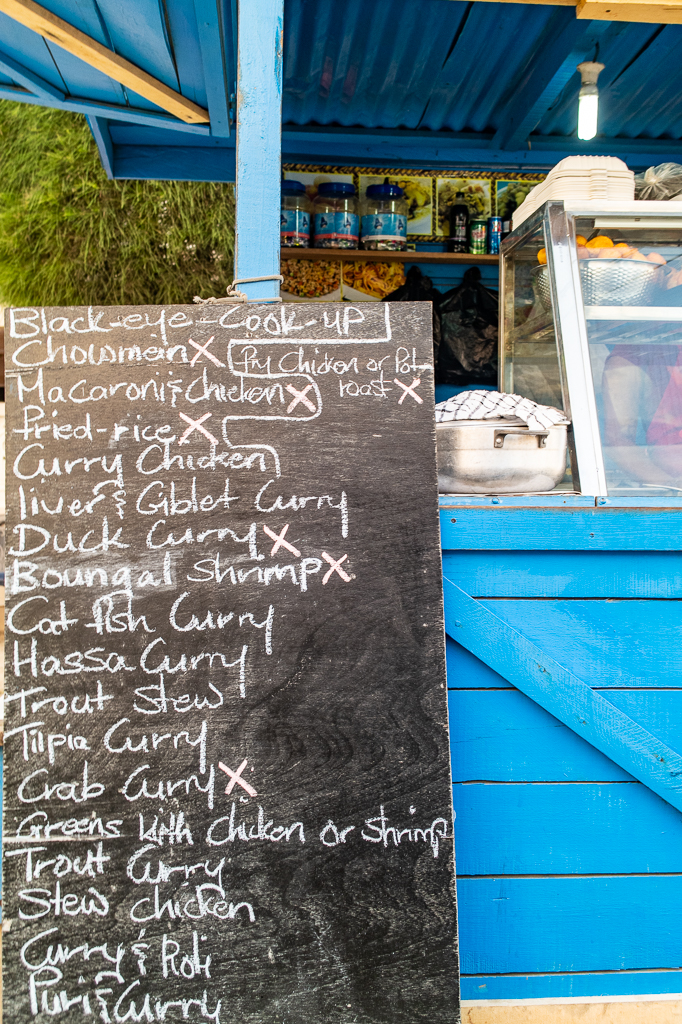 Black-eye-Cook-up
Chowmein X
Fry Chicken or Pot-
roast X
Macaroni & Chicken X
fried-rice X
Curry Chicken
liver & Giblet Curry
Duck Curry X
Boungal Shrimp X
Cat fish Curry
Hassa Curry
Trout Stew
Tilpia Curry
Crab Curry X
Greens With chicken or shrimp
Trout Curry
Stew chicken
Curry & Roti
Puri & Curry